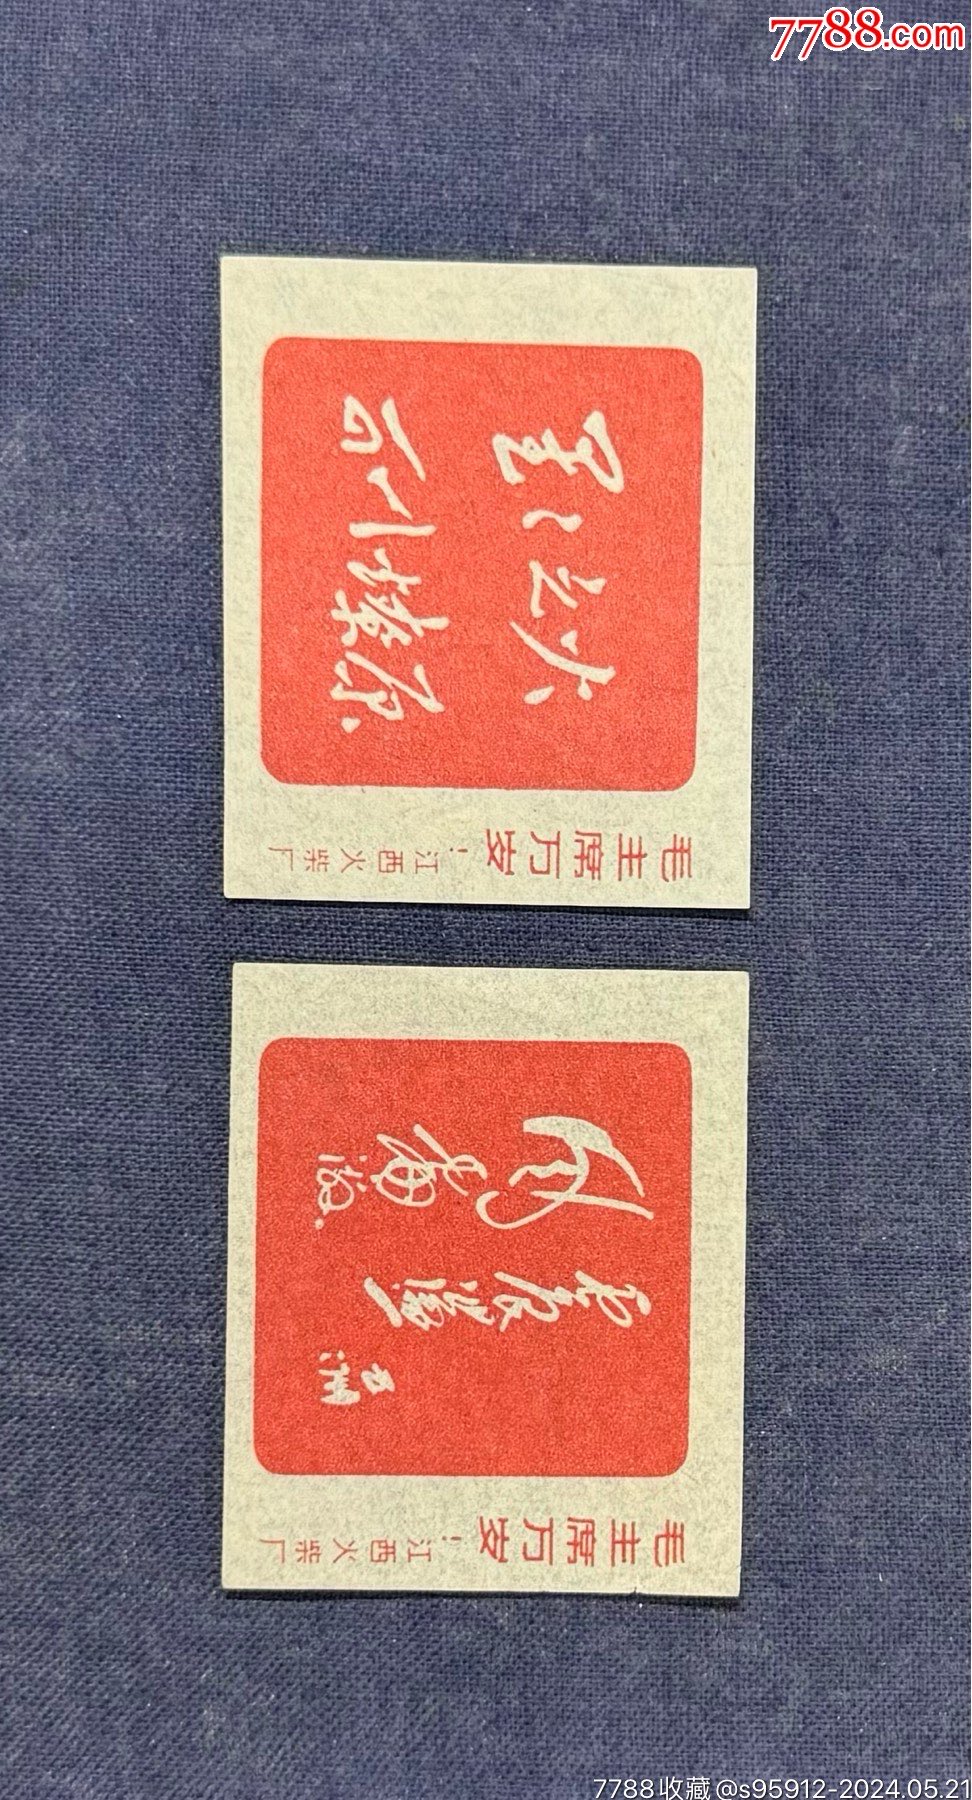 7788.com
星星之火
可以燎原
毛主席万岁！江西火柴厂
毛主席万岁！江西火柴厂
7788收藏@s95912-2024.05.21